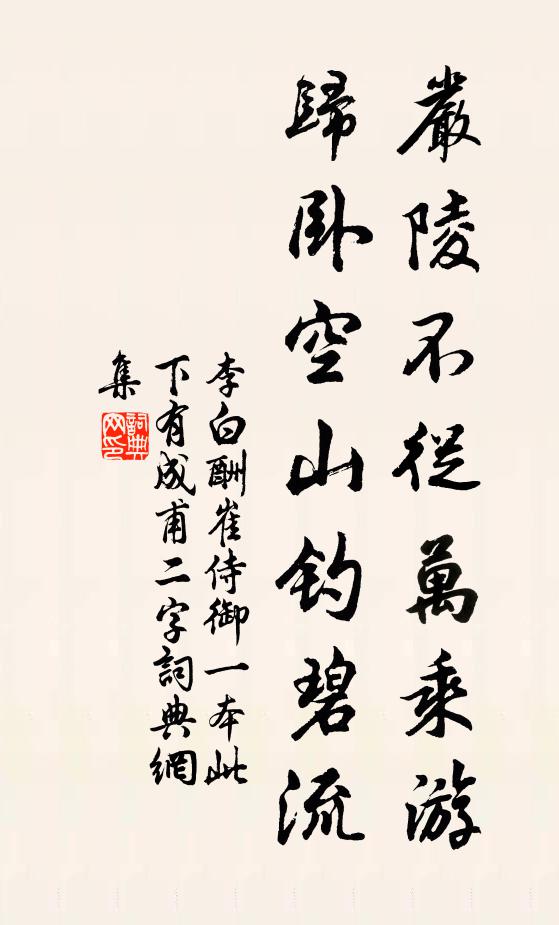 嚴陵不從萬乘游
歸臥空山釣碧流
李白酬崔侍御一本此
下有成甫二字詞典網
集
詞典
网印